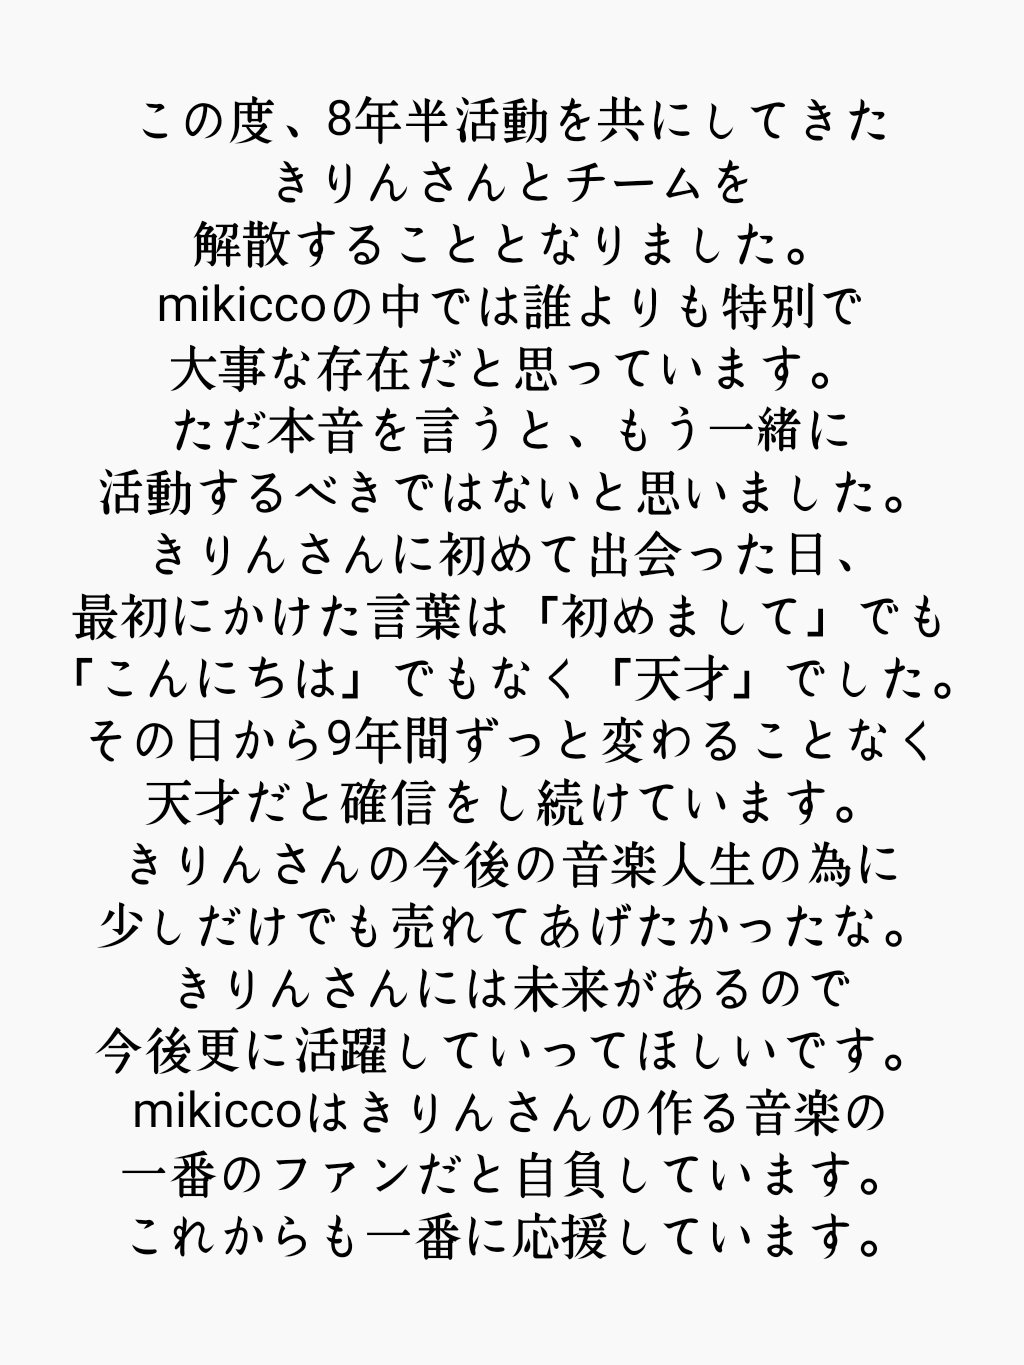 この度、8年半活動を共にしてきた
きりんさんとチームを
解散することとなりました。
mikiccoの中では誰よりも特別で
大事な存在だと思っています。
ただ本音を言うと、もう一緒に
活動するべきではないと思いました。
きりんさんに初めて出会った日、
最初にかけた言葉は「初めまして」でも
「こんにちは」でもなく「天才」でした。
その日から9年間ずっと変わることなく
天才だと確信をし続けています。
きりんさんの今後の音楽人生の為に
少しだけでも売れてあげたかったな。
きりんさんには未来があるので
今後更に活躍していってほしいです。
mikiccoはきりんさんの作る音楽の
一番のファンだと自負しています。
これからも一番に応援しています。